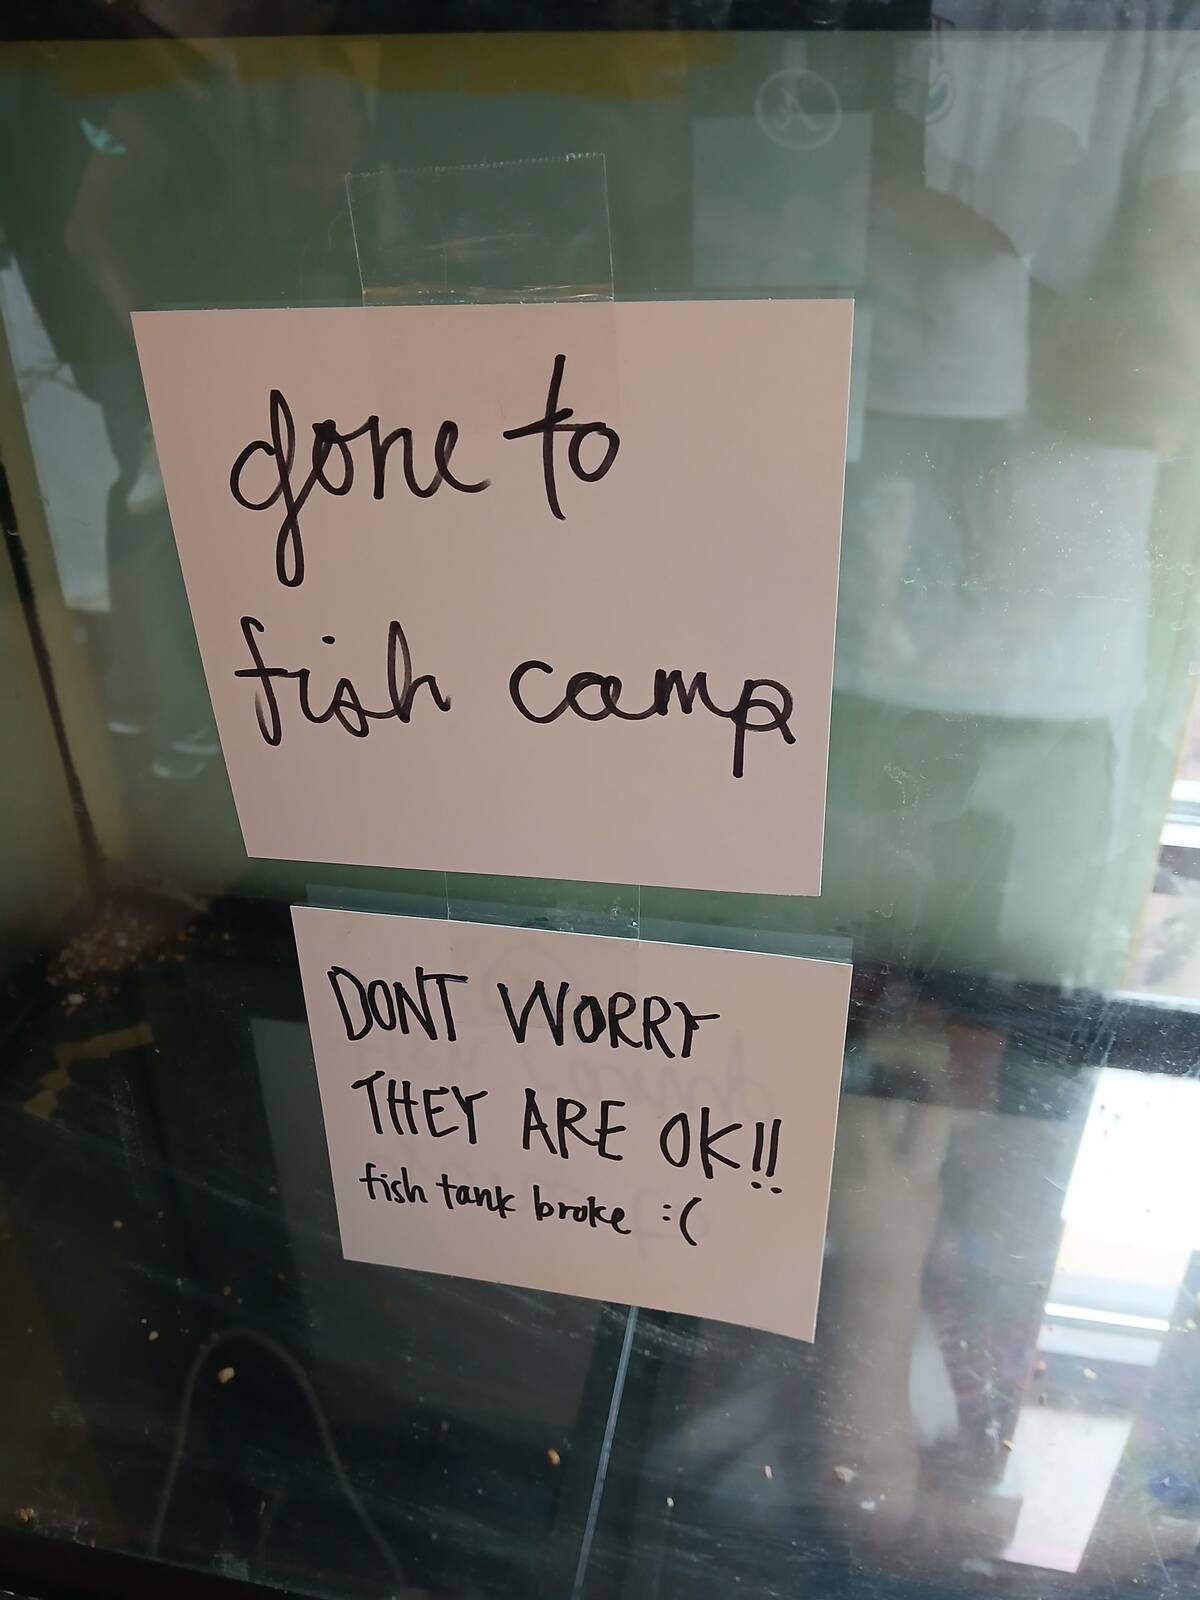 gone to
fish camp
DONT WORRY
THEY ARE OK!!
fish tank broke :(